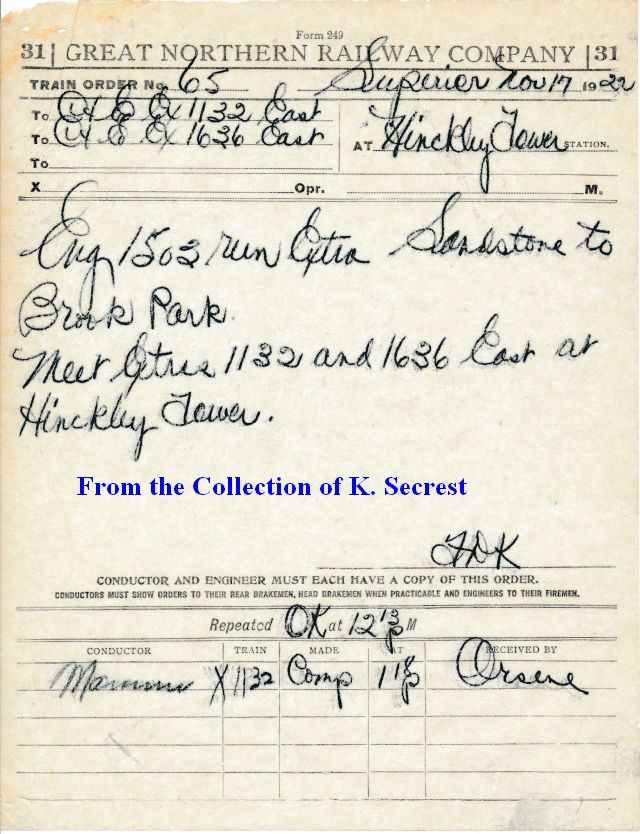 Form 249
31 | GREAT NORTHERN RAILWAY COMPANY | 31
TRAIN ORDER No. 65 Superior Nov 17 1922
To C & E Ex 1132 East
To C & E Ex 1636 East AT Hinckley Tower STATION.
To
X Opr. M.
Eng 1503 run Extra Sandstone to
Brook Park.
Meet Extras 1132 and 1636 East at
Hinckley Tower.
From the Collection of K. Secrest
CONDUCTOR AND ENGINEER MUST EACH HAVE A COPY OF THIS ORDER.
CONDUCTORS MUST SHOW ORDERS TO THEIR REAR BRAKEMEN, HEAD BRAKEMEN WHEN PRACTICABLE AND ENGINEERS TO THEIR FIREMEN.
Repeated OK at 12 13 p M
CONDUCTOR TRAIN MADE AT RECEIVED BY
X 1132 Comp 1 18 p Orsene